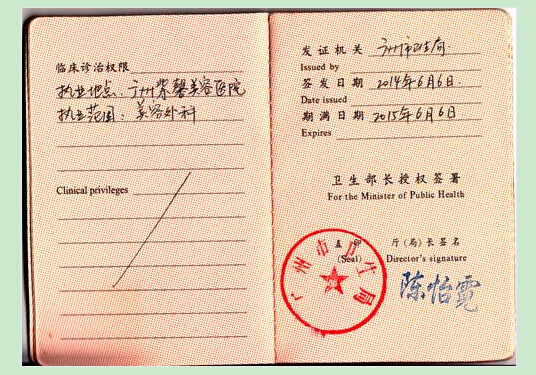 临床诊治权限
执业地点：广州紫馨美容医院
执业范围：美容外科
Clinical privileges
发证机关 广州市卫生局
Issued by
签发日期 2014年6月6日
Date issued
期满日期 2015年6月6日
Expires
卫生部长授权签署
For the Minister of Public Health
盖印 厅(局)长签名
(Seal) Director's signature
广州市卫生局
陈怡霓